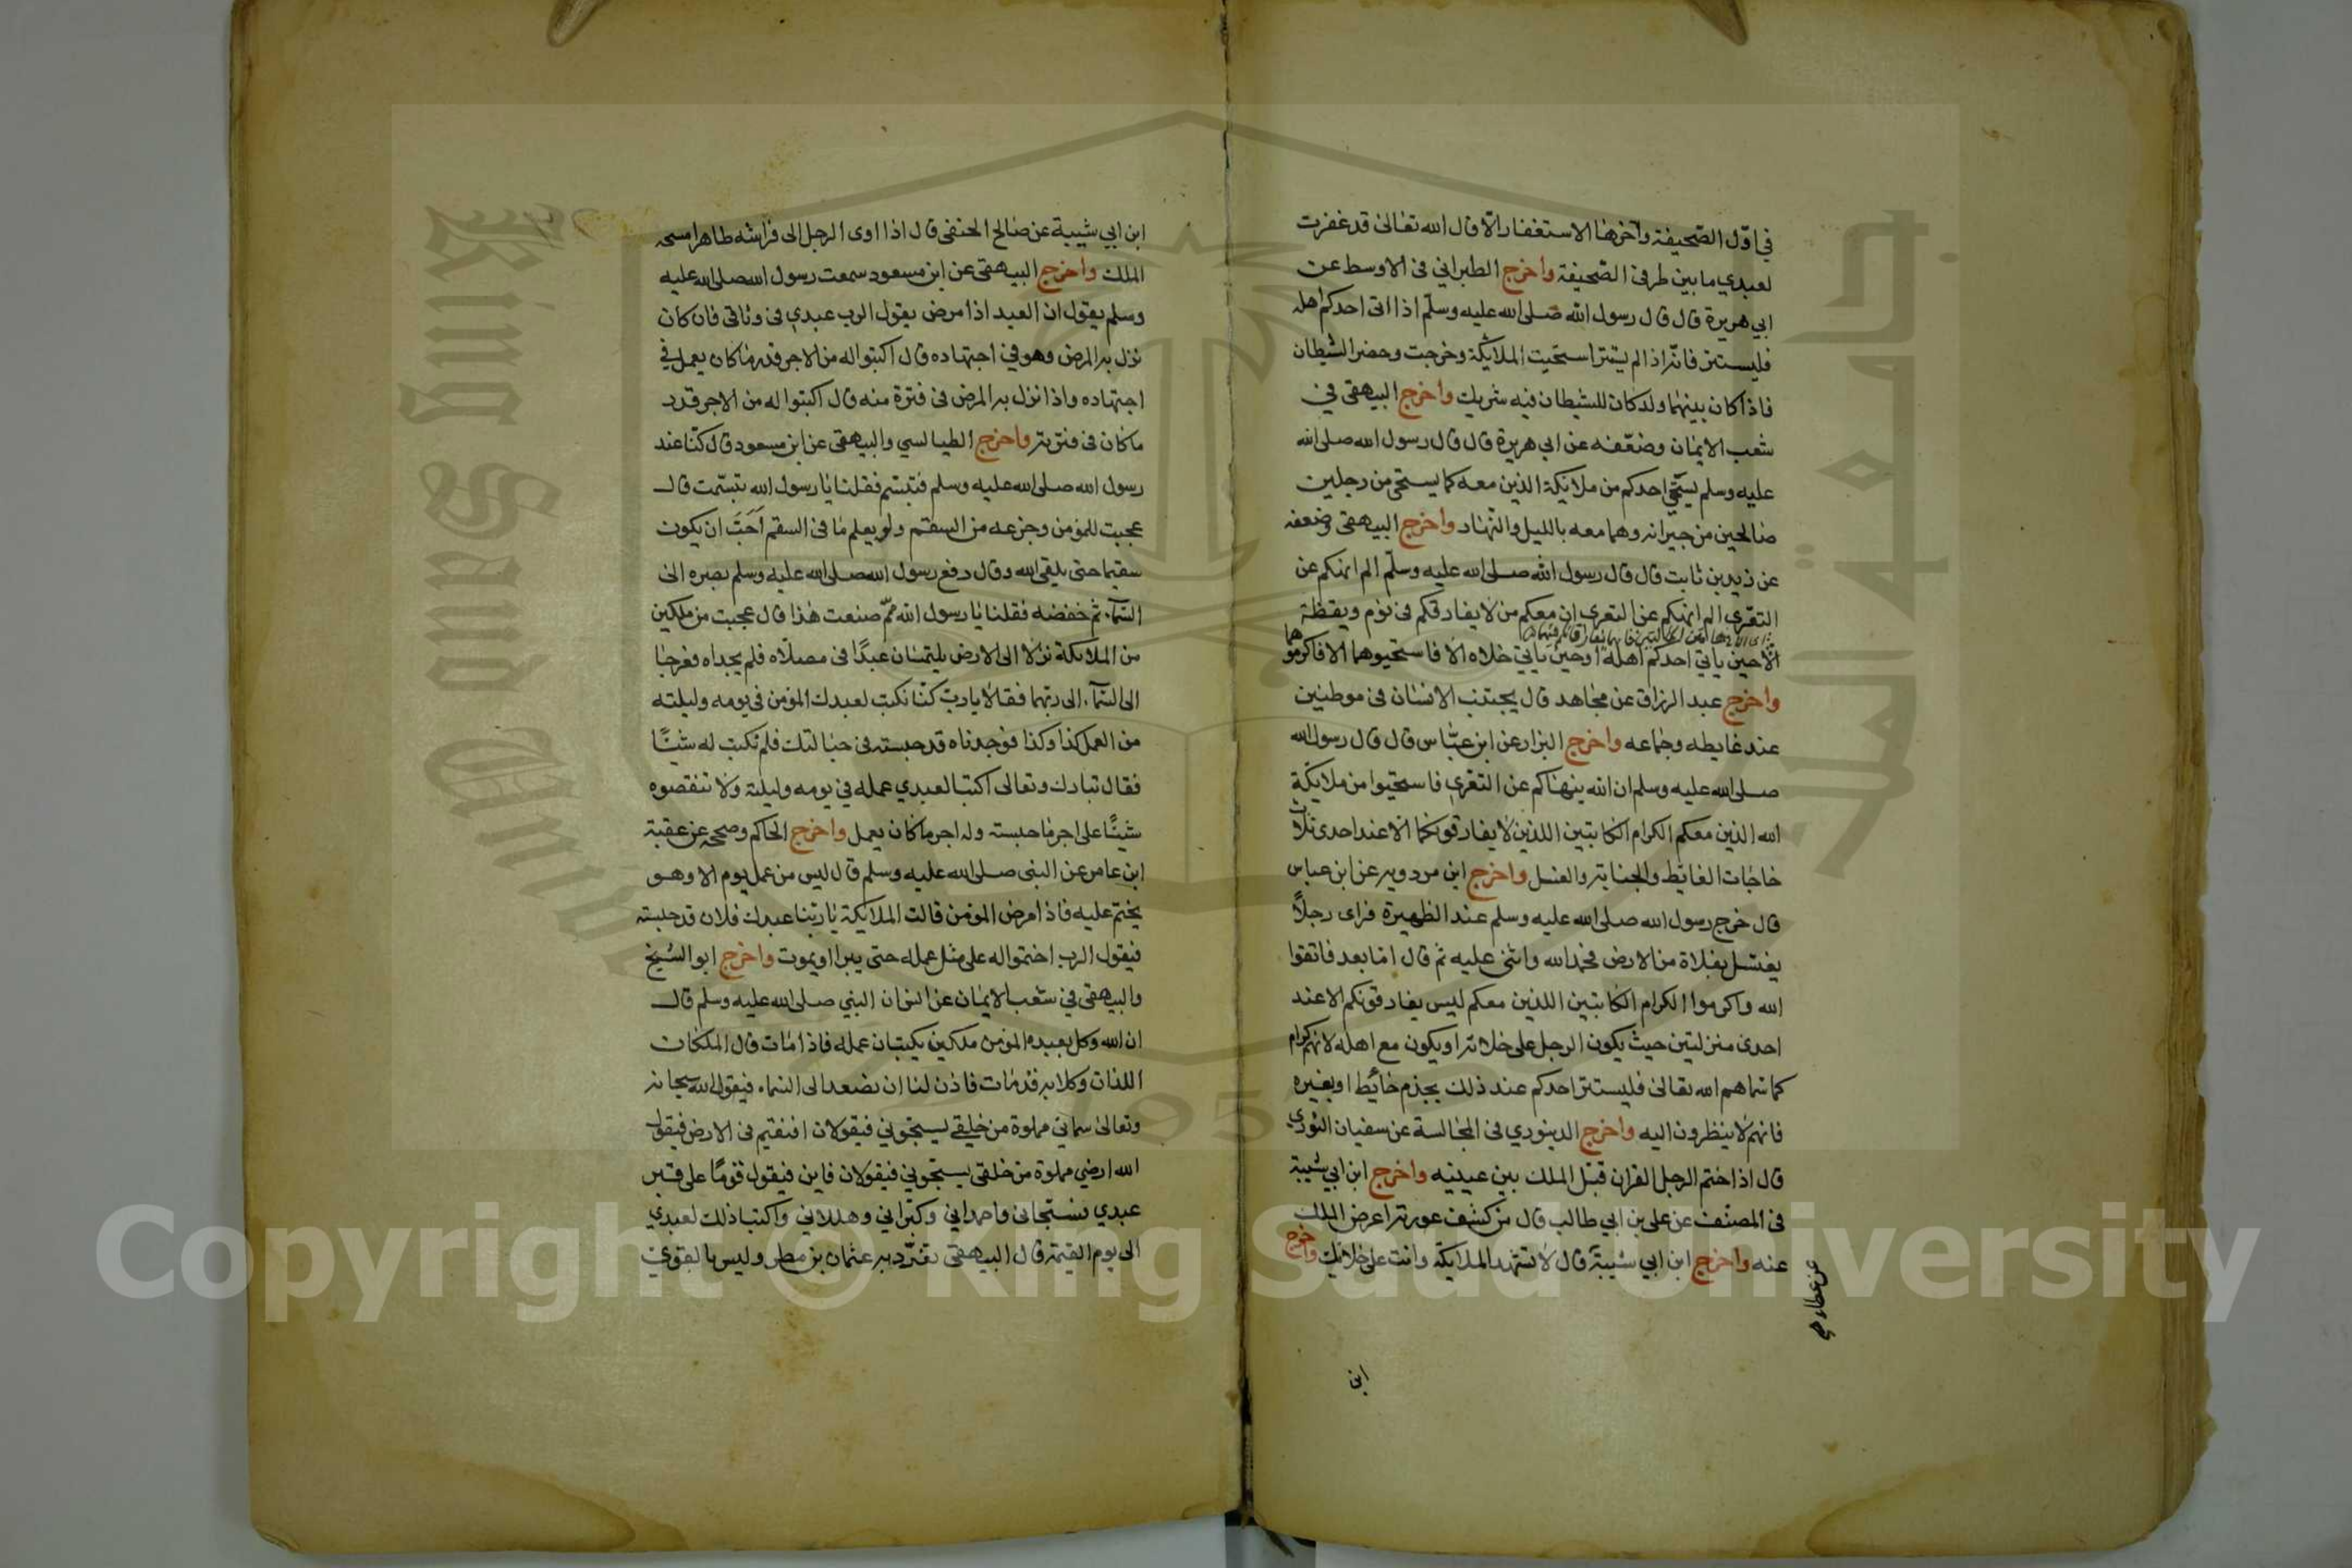 في اول الصحيفة وآخرها الاستغفار الا قال الله تعالى قد غفرت
لعبدي ما بين طرفي الصحيفة واخرج الطبراني في الاوسط عن
ابي هريرة قال قال رسول الله صلى الله عليه وسلم اذا اتى احدكم اهله
فليستتر فانه اذا لم يستتر استحيت الملايكة وخرجت وحضر الشيطان
فاذا كان بينهما ولد كان للشيطان فيه شريك واخرج البيهقي في
شعب الايمان وضعفه عن ابي هريرة قال قال رسول الله صلى الله
عليه وسلم ليستحي احدكم من ملايكة الذين معه كما يستحي من رجلين
صالحين من جيرانه وهما معه بالليل والنهار واخرج البيهقي وضعفه
عن زيد بن ثابت قال قال رسول الله صلى الله عليه وسلم الم انهكم عن
التعري الم انهكم عن التعري ان معكم من لا يفارقكم في نوم ويقظة
الا حين ياتي احدكم اهله او حين ياتي خلاه الا فاستحيوهما الا فاكرموهما
واخرج عبد الرزاق عن مجاهد قال يجتنب الانسان في موطنين
عند غايطه وجماعه واخرج البزار عن ابن عباس قال قال رسول الله
صلى الله عليه وسلم ان الله ينهاكم عن التعري فاستحيوا من ملايكة
الله الذين معكم الكرام الكاتبين اللذين لا يفارقونكما الا عند احدى ثلاث
حاجات الغائط والجنابة والغسل واخرج ابن مردويه عن ابن عباس
قال خرج رسول الله صلى الله عليه وسلم عند الظهيرة فراى رجلاً
يغتسل بفلاة من الارض فحمد الله واثنى عليه ثم قال اما بعد فاتقوا
الله واكرموا الكرام الكاتبين اللذين معكم ليس يفارقونكم الا عند
احدى منزلتين حيث يكون الرجل على خلائه او يكون مع اهله لانهم كرام
كما سماهم الله تعالى فليستتر احدكم عند ذلك بجذم حائط او بغيره
فانهم لا ينظرون اليه واخرج الدينوري في المجالسة عن سفيان الثوري
قال اذا ختم الرجل القران قبل الملك بين عينيه واخرج ابن ابي شيبة
في المصنف عن علي بن ابي طالب قال من كشف عورته اعرض الملك
عنه واخرج ابن ابي شيبة قال لا تشهد الملايكة وانت على خلائك واخرج
عن عطاء صح
ابن
ابن ابي شيبة عن صالح الحنفي قال اذا اوى الرجل الى فراشه طاهرا مسحه
الملك واخرج البيهقي عن ابن مسعود سمعت رسول الله صلى الله عليه
وسلم يقول ان العبد اذا مرض يقول الرب عبدي في وثاقي فان كان
نزل به المرض وهو في اجتهاده قال اكتبوا له من الاجر قدر ما كان يعمل في
اجتهاده واذا نزل به المرض في فترة منه قال اكتبوا له من الاجر قدر
ما كان في فترته واخرج الطيالسي والبيهقي عن ابن مسعود قال كنا عند
رسول الله صلى الله عليه وسلم فتبسم فقلنا يا رسول الله تبسمت قال
عجبت للمؤمن وجزعه من السقم ولو يعلم ما في السقم اَحَبَّ ان يكون
سقيما حتى يلقى الله وقال رفع رسول الله صلى الله عليه وسلم بصره الى
السماء ثم خفضه فقلنا يا رسول الله مم صنعت هذا قال عجبت من ملكين
من الملايكة نزلا الى الارض يلتمسان عبدًا في مصلاه فلم يجداه فعرجا
الى السماء الى ربهما فقالا يا رب كنا نكتب لعبدك المؤمن في يومه وليلته
من العمل كذا وكذا فوجدناه قد حبسته في حبالتك فلم نكتب له شيئًا
فقال تبارك وتعالى اكتبا لعبدي عمله في يومه وليلته ولا تنقصوه
شيئًا على اجر ما حبسته وله اجر ما كان يعمل واخرج الحاكم وصححه عن عقبة
ابن عامر عن النبي صلى الله عليه وسلم قال ليس من عمل يوم الا وهو
يختم عليه فاذا مرض المؤمن قالت الملايكة يا ربنا عبدك فلان قد حبسته
فيقول الرب اختموا له على مثل عمله حتى يبرا او يموت واخرج ابو الشيخ
والبيهقي في شعب الايمان عن انس ان النبي صلى الله عليه وسلم قال
ان الله وكل بعبده المؤمن ملكين يكتبان عمله فاذا مات قال الملكان
اللذان وكلا به قد مات فاذن لنا ان نصعد الى السماء فيقول الله سبحانه
وتعالى سمائي مملوة من خلقي يسبحوني فيقولان افنقيم في الارض فيقول
الله ارضي مملوة من خلقي يسبحوني فيقولان فاين فيقول قومًا على قبر
عبدي فسبحاني واحمداني وكبراني وهللاني واكتبا ذلك لعبدي
الى يوم القيمة قال البيهقي تفرد به عثمان بن مطر وليس بالقوي
جامعة الملك
King Saud Univ
1957
Copyright © King Saud University